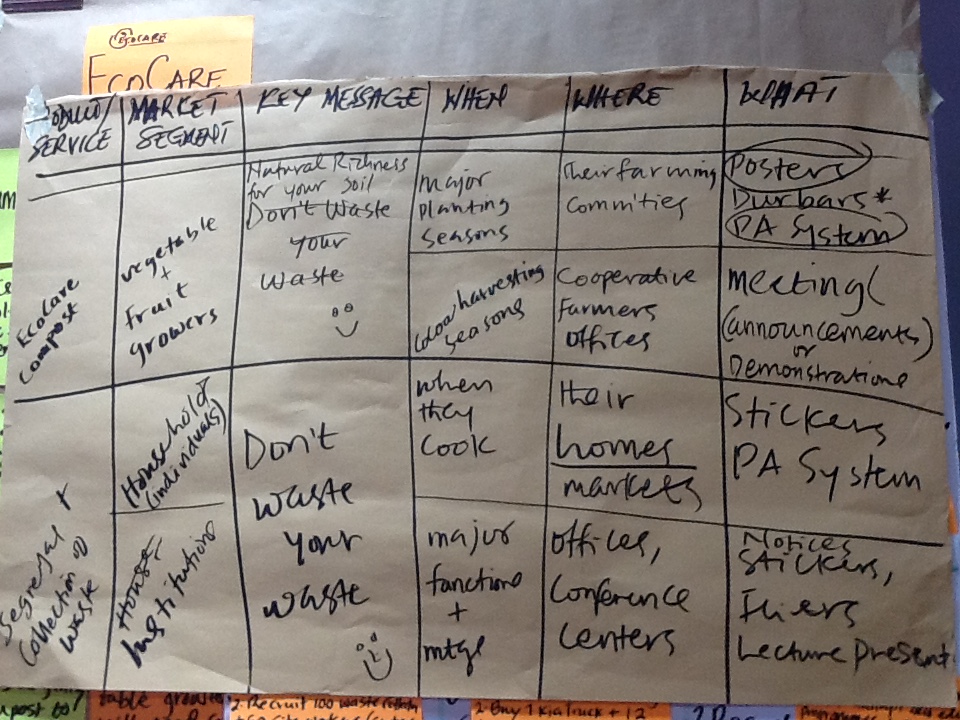 ECOCARE
ECOCARE
SERVICE
MARKET
SEGMENT
KEY MESSAGE
WHEN
WHERE
WHAT
EcoCare
compost
vegetable
+
fruit
growers
Natural Richness
for your soil
Don't Waste
your
waste
major
planting
seasons
harvesting
seasons
Their farming
Commities
Cooperative
Farmers
offices
Posters
Durbars*
PA System
meeting(
(announcements)
or
Demonstrations
Segregat +
Collection of
waste
Households
(individuals)
Don't
waste
your
waste
when
they
Cook
their
homes
markets
Stickers
PA System
Institutions
major
functions
+
mtgs
offices,
Conference
Centers
Notices
Stickers,
Fliers
Lecture Present
table
2. Recruit 100 waste
2. Buy 1 kia Truck + 12